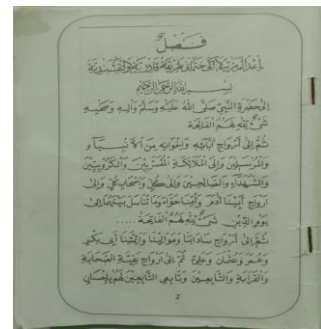 فصل
بسم الله الرحمن الرحيم
إِلَى حَضْرَةِ النَّبِيِّ صَلَّى اللهُ عَلَيْهِ وَسَلَّمَ وَآلِهِ وَصَحْبِهِ
شَيْءٌ لِلّٰهِ لَهُمُ الْفَاتِحَةْ
ثُمَّ إِلَى أَرْوَاحِ آبَائِهِ وَإِخْوَانِهِ مِنَ الْأَنْبِيَاءِ
وَالْمُرْسَلِيْنَ وَإِلَى الْمَلَائِكَةِ الْمُقَرَّبِيْنَ وَالْكَرُوْبِيِّيْنَ
وَالشُّهَدَاءِ وَالصَّالِحِيْنَ وَإِلَى كُلٍّ وَأَصْحَابِ كُلٍّ وَإِلَى
أَرْوَاحِ أَبِيْنَا آدَمَ وَأُمِّنَا حَوَّاءَ وَمَا تَنَاسَلَ بَيْنَهُمَا إِلَى
يَوْمِ الدِّيْنِ شَيْءٌ لِلّٰهِ لَهُمُ الْفَاتِحَةْ .....
ثُمَّ إِلَى أَرْوَاحِ سَادَاتِنَا وَمَوَالِيْنَا وَأَئِمَّتِنَا أَبِي بَكْرٍ
وَعُمَرَ وَعُثْمَانَ وَعَلِيٍّ ثُمَّ إِلَى أَرْوَاحِ بَقِيَّةِ الصَّحَابَةِ
وَالْقَرَابَةِ وَالتَّابِعِيْنَ وَتَابِعِي التَّابِعِيْنَ لَهُمْ بِإِحْسَانٍ
2